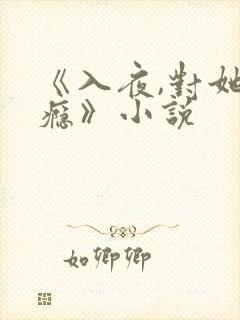 《入夜,對她
癮》小說
如卿卿